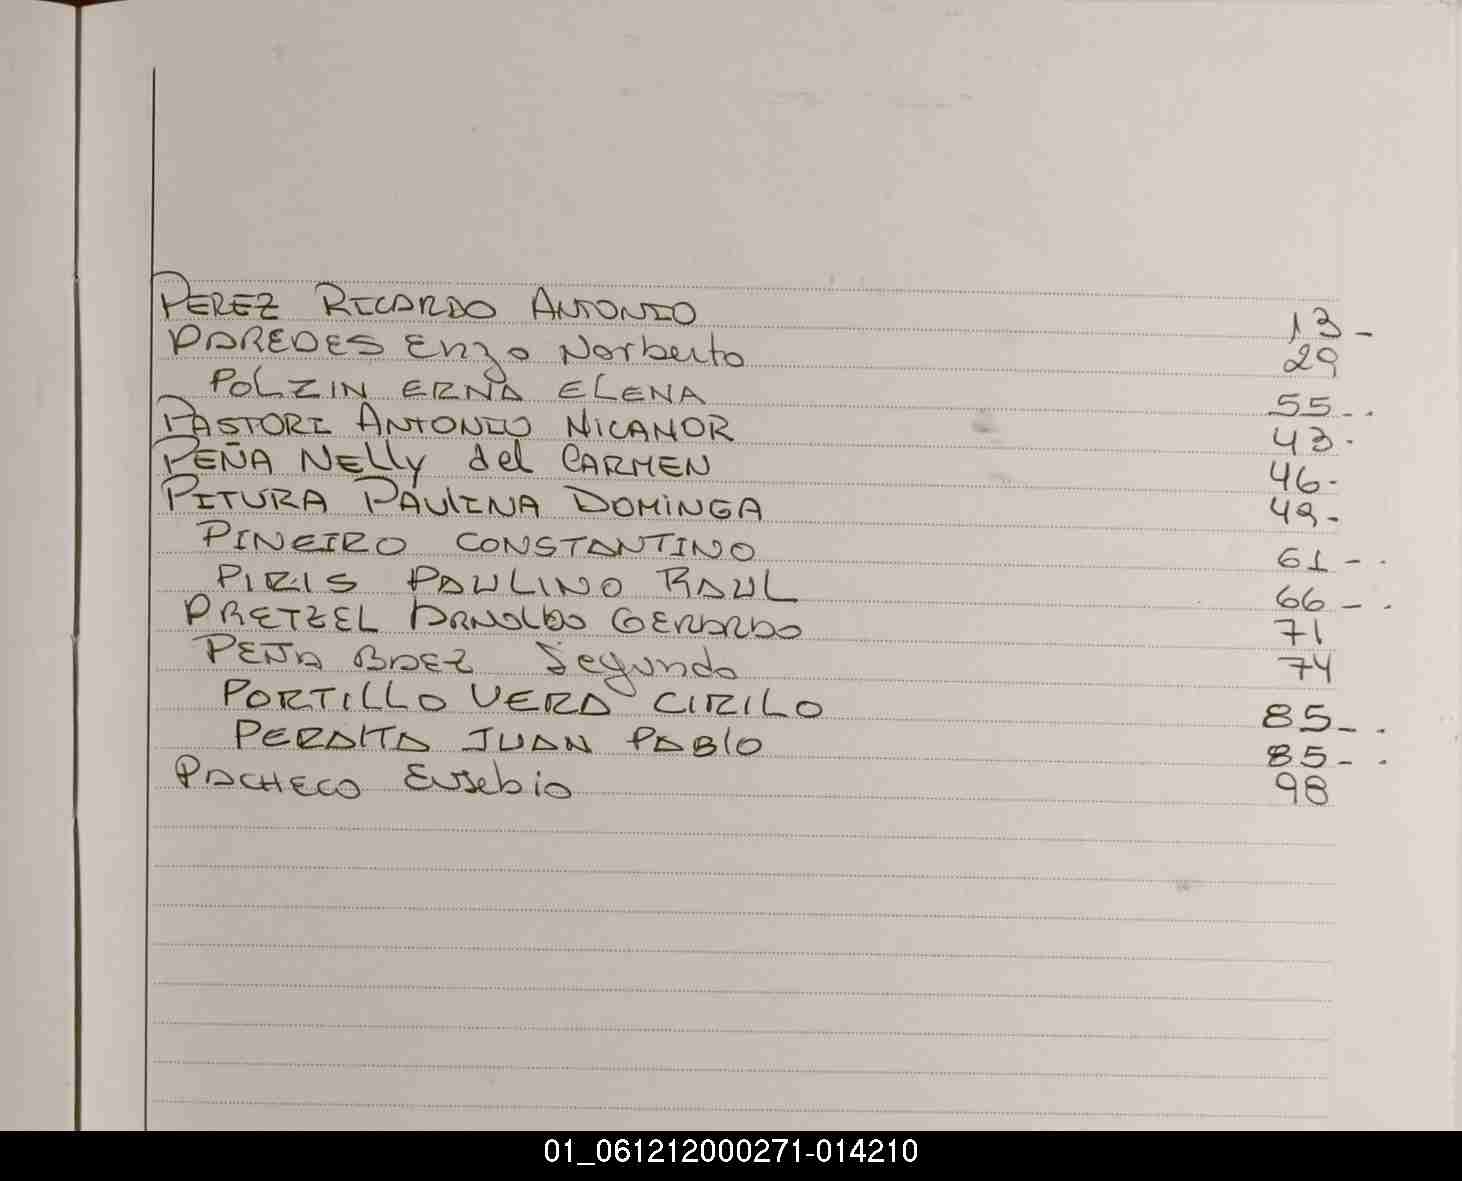 PEREZ RICARDO ANTONIO 13-
PAREDES Enzo Norberto 29
POLZIN ERNA ELENA 55-.
PASTORI ANTONIO NICANOR 43.
PEÑA NELLY del CARMEN 46-
PITURA PAULINA DOMINGA 49-
PINEIRO CONSTANTINO 61-.
PIRIS PAULINO RAUL 66-.
PRETZEL ARNOLDO GERARDO 71
PEÑA BAEZ Segundo 74
PORTILLO VERA CIRILO 85-.
PERALTA JUAN PABLO 85-.
PACHECO Eusebio 98
01_061212000271-014210